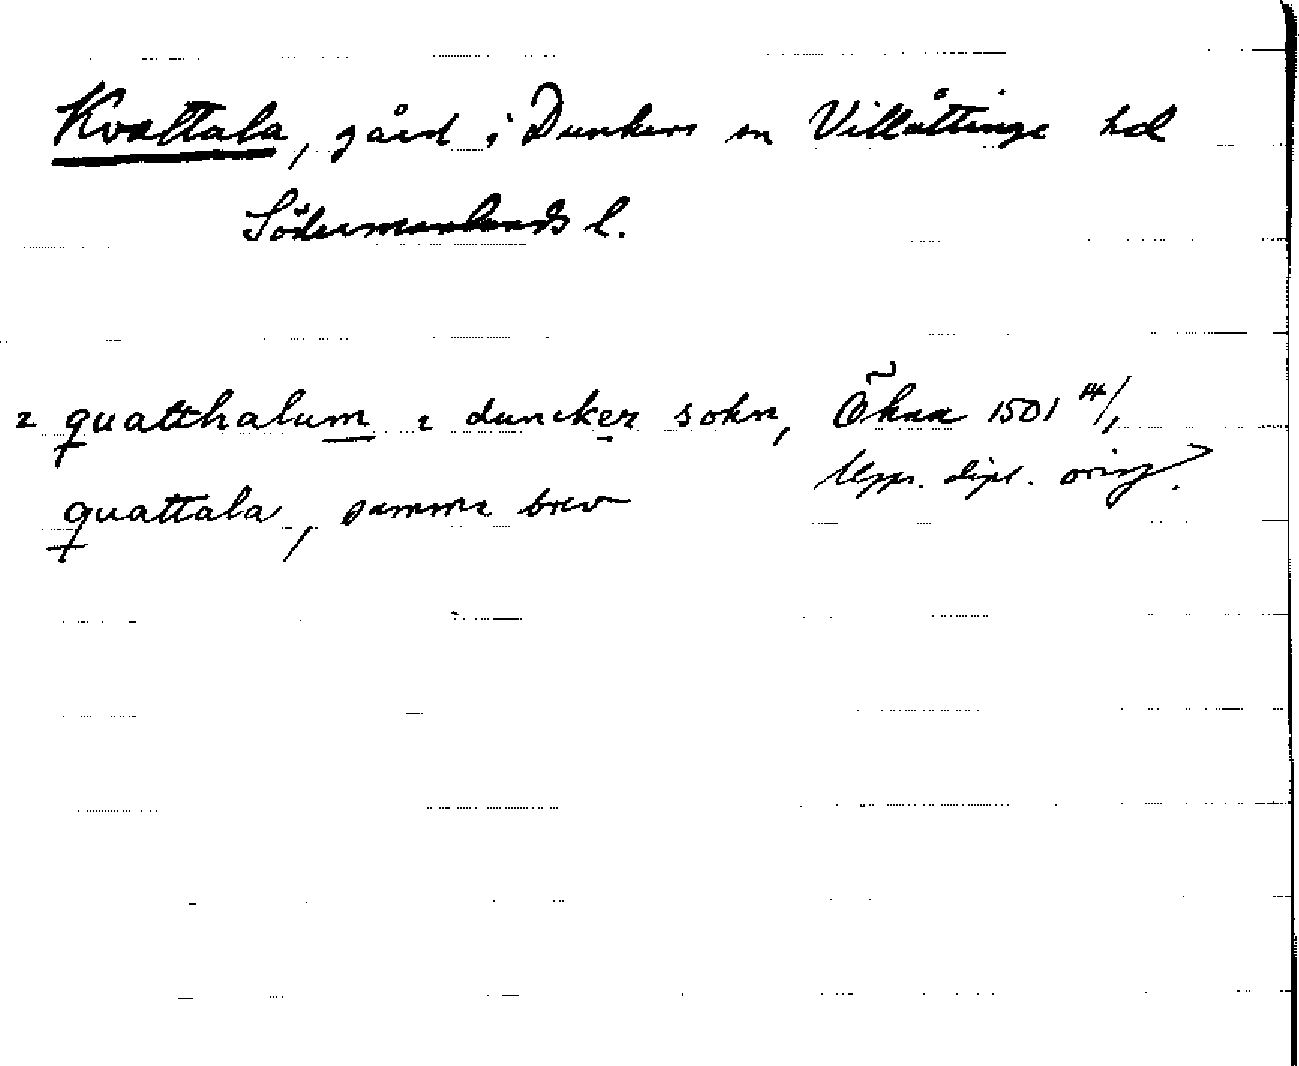 Kvattala, gård i Dunkers sn Villåttinge hd
Södermanlands l.
i quatthalum i duncker sokn, Õknæ 1501 14/1
quattala, samma brev
Upps. dipl. orig.